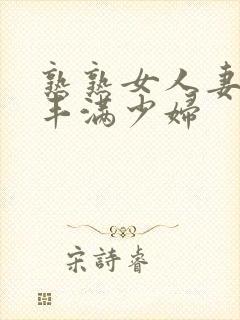 熟熟女人妻
丰满少婦
宋詩睿